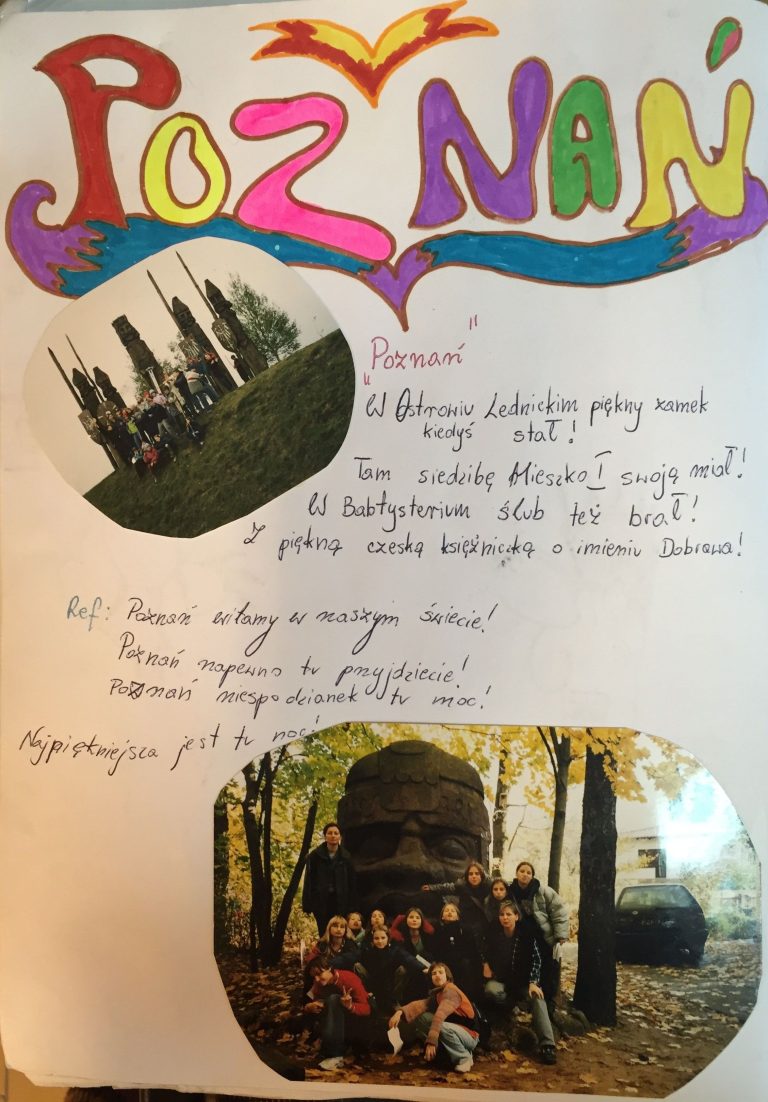 POZNAŃ
"Poznań"
W Ostrowiu Lednickim piękny zamek
kiedyś stał!
Tam siedzibę Mieszko I swoją miał!
W Babtysterium ślub też brał!
Z piękną czeską księżniczką o imieniu Dobrawa!
Ref: Poznań witamy w naszym świecie!
Poznań napewno tu przyjdziecie!
Poznań niespodzianek tu moc!
Najpiękniejsza jest tu noc!